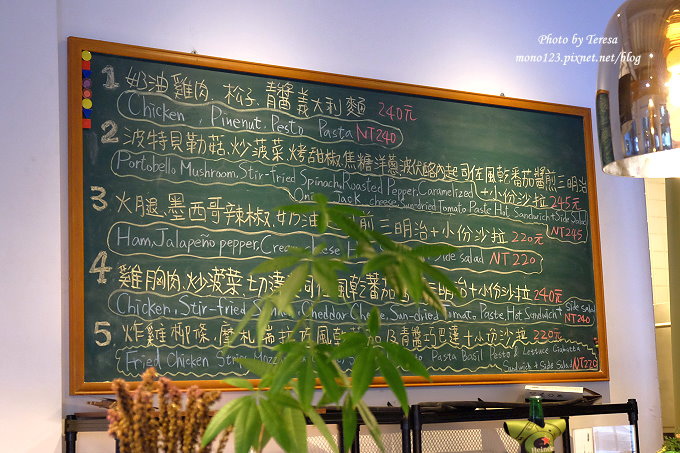 Photo by Teresa
mono123.pixnet.net/blog
1 奶油雞肉、松子、青醬義大利麵 240元
Chicken, Pinenut, Pesto Pasta NT240
2 波特貝勒菇、炒菠菜、烤甜椒、焦糖洋蔥 起司佐風乾番茄醬煎三明治
Portobello Mushroom, Stir-fried Spinach, Roasted Pepper, Caramelized +小份沙拉 245元
Jack cheese, Sundried Tomato Paste Hot Sandwich+Side Salad NT245
3 火腿、墨西哥辣椒、奶油 煎三明治+小份沙拉 220元
Ham, Jalapeño pepper, Cream side salad NT220
4 雞胸肉、炒菠菜、切達 司佐風乾番茄 +小份沙拉 240元
Chicken, Stir-fried Cheddar Cheese, Sun-dried Paste, Hot Sandwich+ Side salad NT240
5 炸雞柳條、摩札瑞拉 青醬巧巴達+小份沙拉 220元
Fried Chicken Strips Pasta Basil Pesto & Lettuce Ciabatta
Sandwich+Side Salad NT220
Heineken